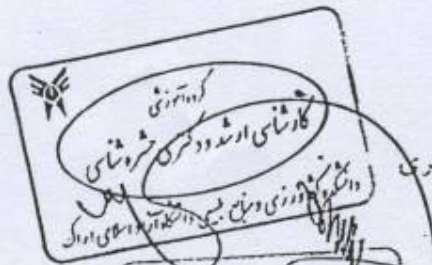 گروه آموزشی
کارشناسی ارشد و دکتری حشره شناسی
دانشکده کشاورزی و منابع طبیعی دانشگاه آزاد اسلامی اراک